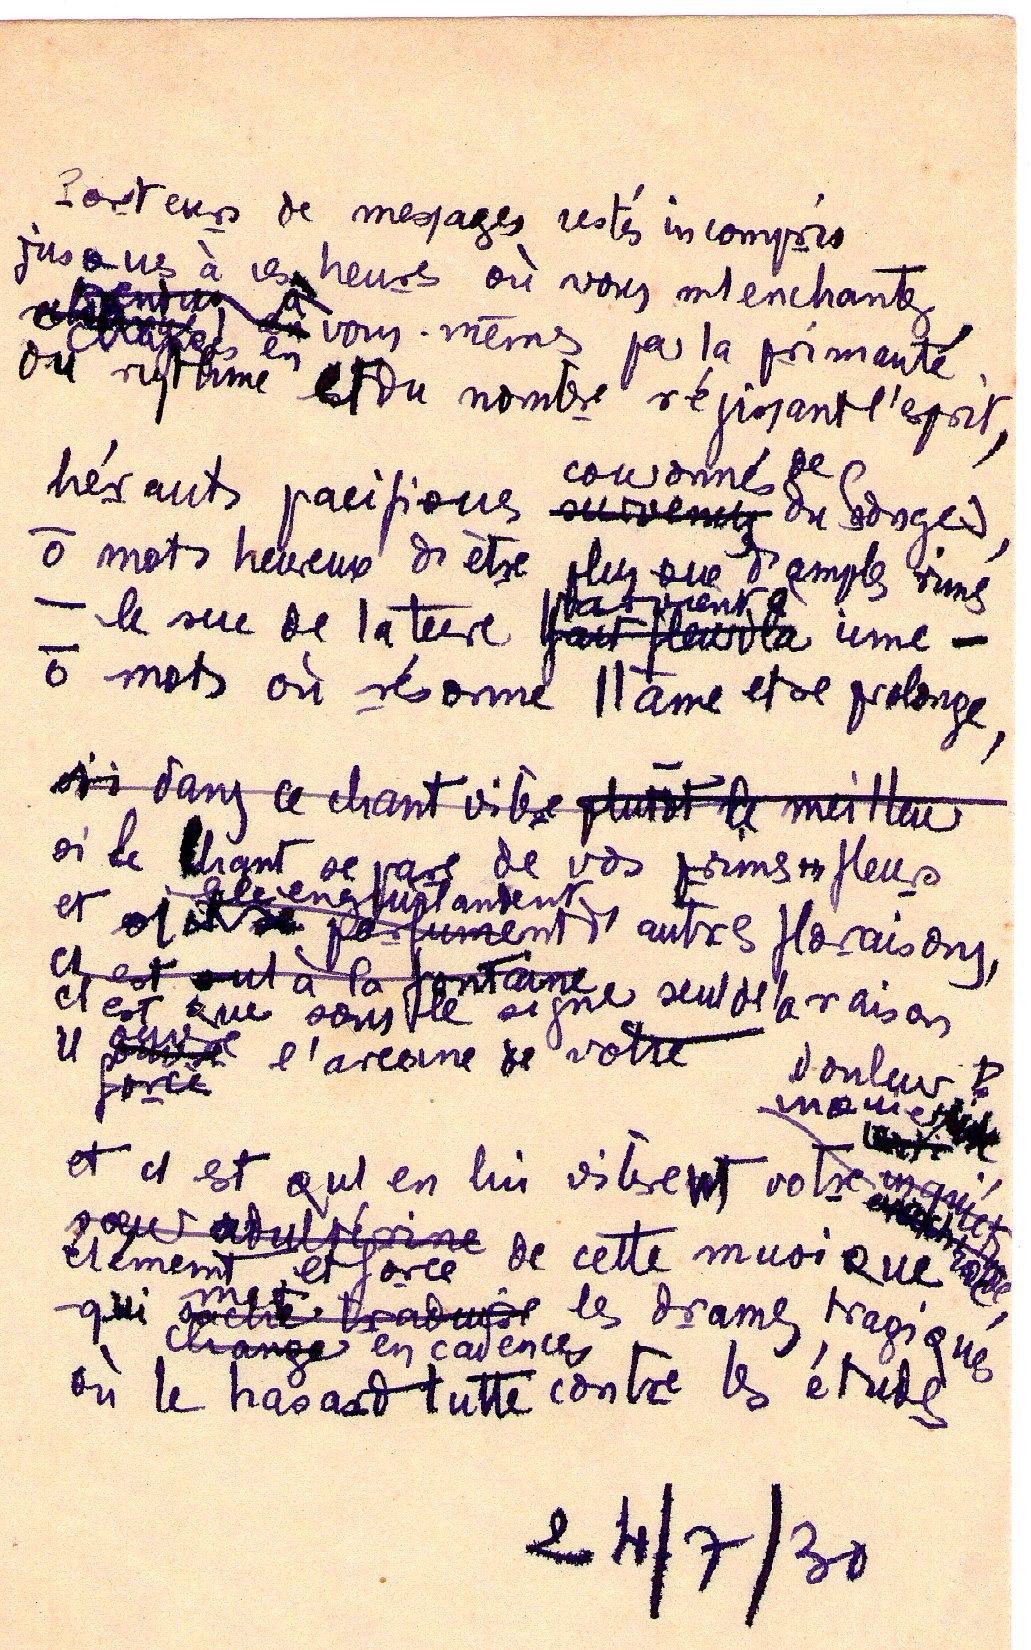 Porteurs de messages restés incompris
jusques à ces heures où vous m'enchantez,
rendus à
changés en vous-mêmes par la primauté
du rythme et du nombre régissant l'esprit,
hérauts pacifiques couronnés de
survenus du songe,
ô mots heureux d'être plus que d'amples rimes
— le suc de la terre parvient à
fait fleurir la cime —
ô mots où résonne l'âme et se prolonge,
si dans ce chant vibre plutôt le meilleur
si le chant se pare de vos primes fleurs
s'enguirlandent
et s'il se parfument d'autres floraisons,
c'est qu'à la fontaine
c'est que sous le signe seul de la raison
il ouvre l'arcane de votre
force
douleur ?
inquiet,
et c'est qu'en lui vibrent votre
soeur adultérine
élément et force de cette musique
qui sache traduire les drames tragiques
met
change en cadences
où le hasard lutte contre les études
24/7/30